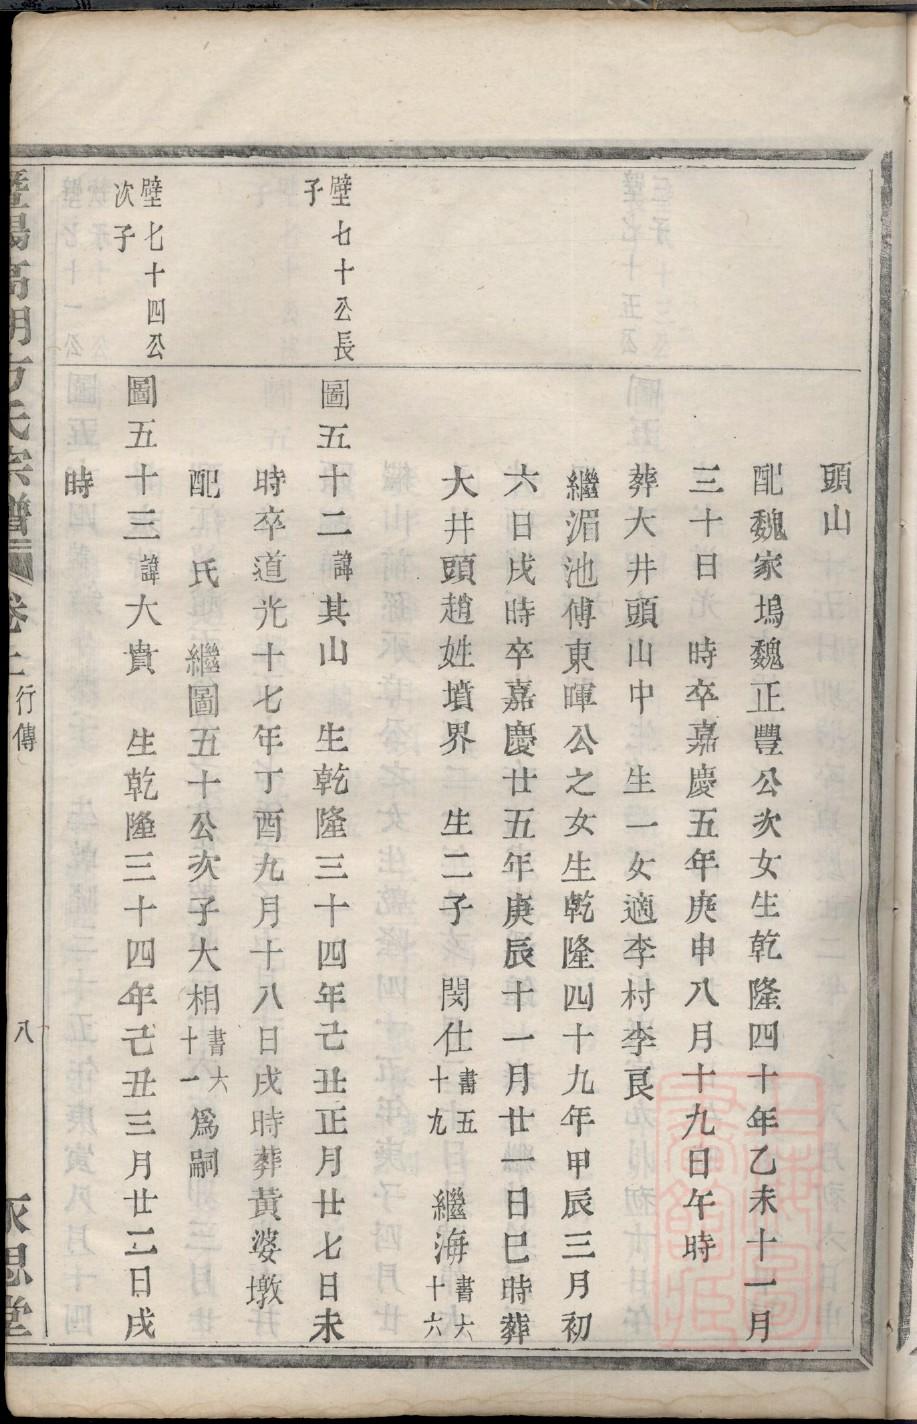 頭山
配魏家塢魏正豐公次女生乾隆四十年乙未十一月
三十日 時卒嘉慶五年庚申八月十九日午時
葬大井頭山中生一女適李村李良
繼湄池傅東暉公之女生乾隆四十九年甲辰三月初
六日戌時卒嘉慶廿五年庚辰十一月廿一日巳時葬
大井頭趙姓墳界 生二子 閔仕書五十九 繼海書六十六
壁七十公長子
圖五十二諱其山 生乾隆三十四年己丑正月廿七日未
時卒道光十七年丁酉九月十八日戌時葬黃婆墩
配 氏 繼圖五十公次子大相書六十一爲嗣
壁七十四公次子
圖五十三諱大貴 生乾隆三十四年己丑三月廿二日戌
時
暨陽高湖方氏宗譜 卷二 行傳 八 永思堂